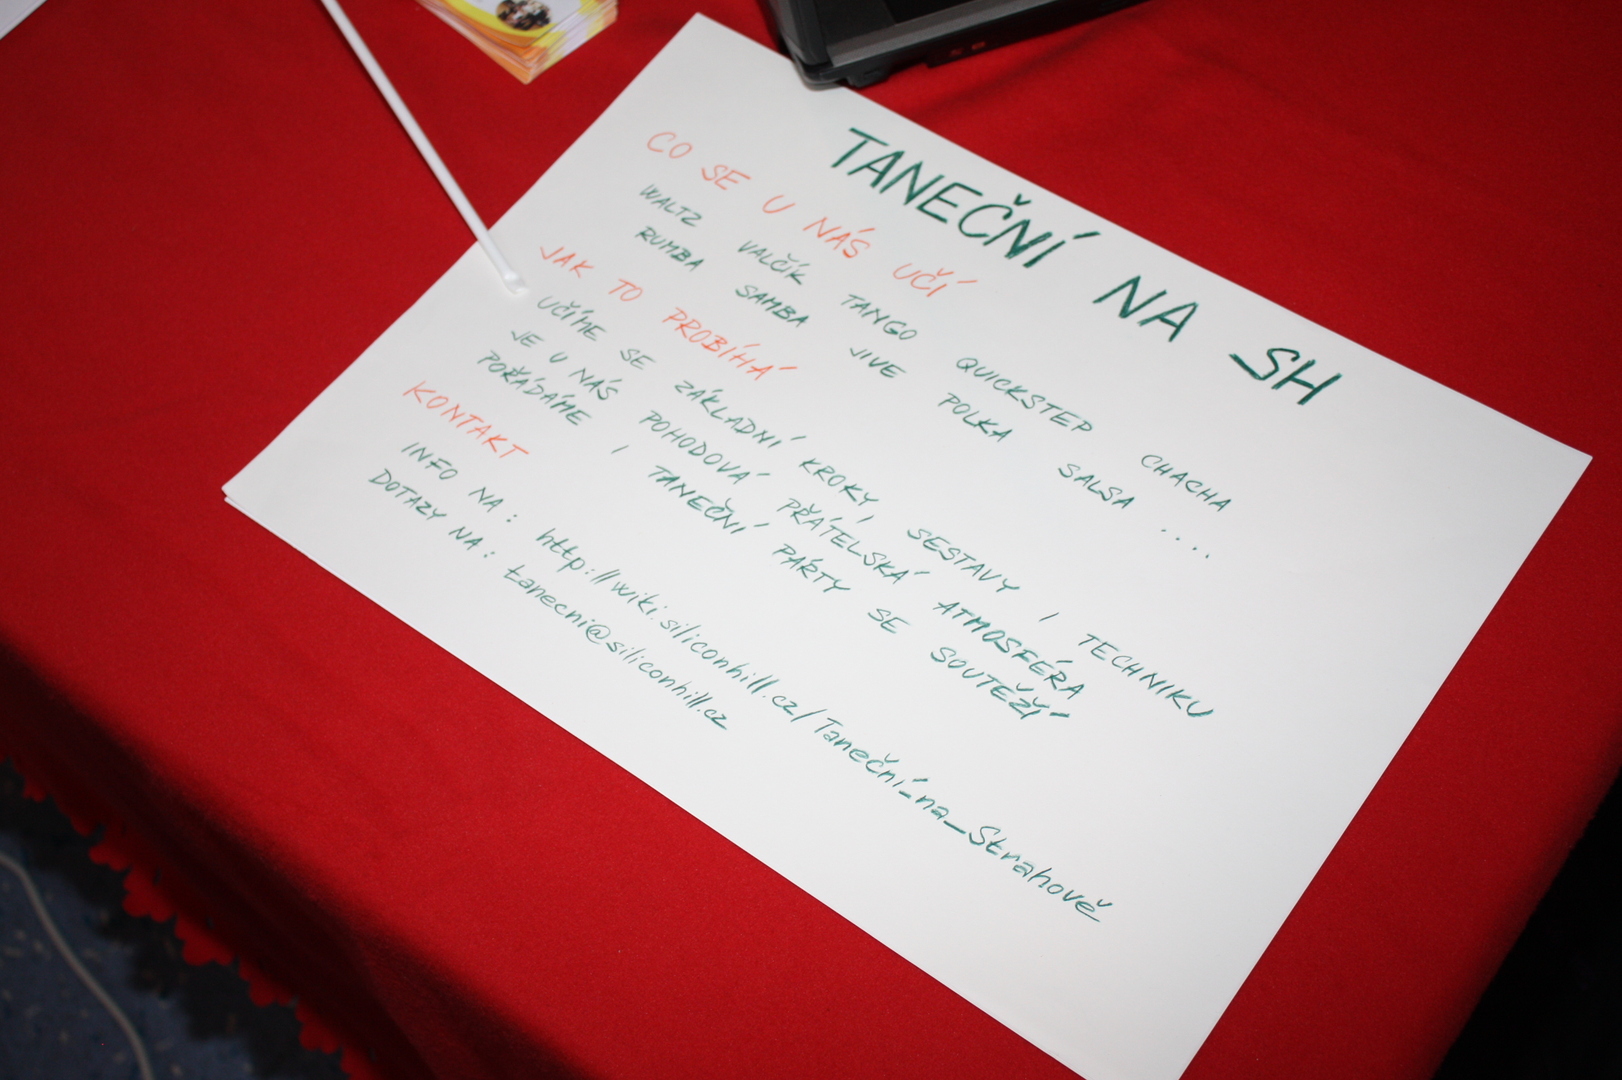 TANEČNÍ NA SH
CO SE U NÁS UČÍ
WALTZ VALČÍK TANGO QUICKSTEP CHACHA
RUMBA SAMBA JIVE POLKA SALSA ....
JAK TO PROBÍHÁ
UČÍME SE ZÁKLADNÍ KROKY, SESTAVY I TECHNIKU
JE U NÁS POHODOVÁ PŘÁTELSKÁ ATMOSFÉRA
POŘÁDÁME I TANEČNÍ PÁRTY SE SOUTĚŽÍ
KONTAKT
INFO NA: http://wiki.siliconhill.cz/Taneční_na_Strahově
DOTAZY NA: tanecni@siliconhill.cz